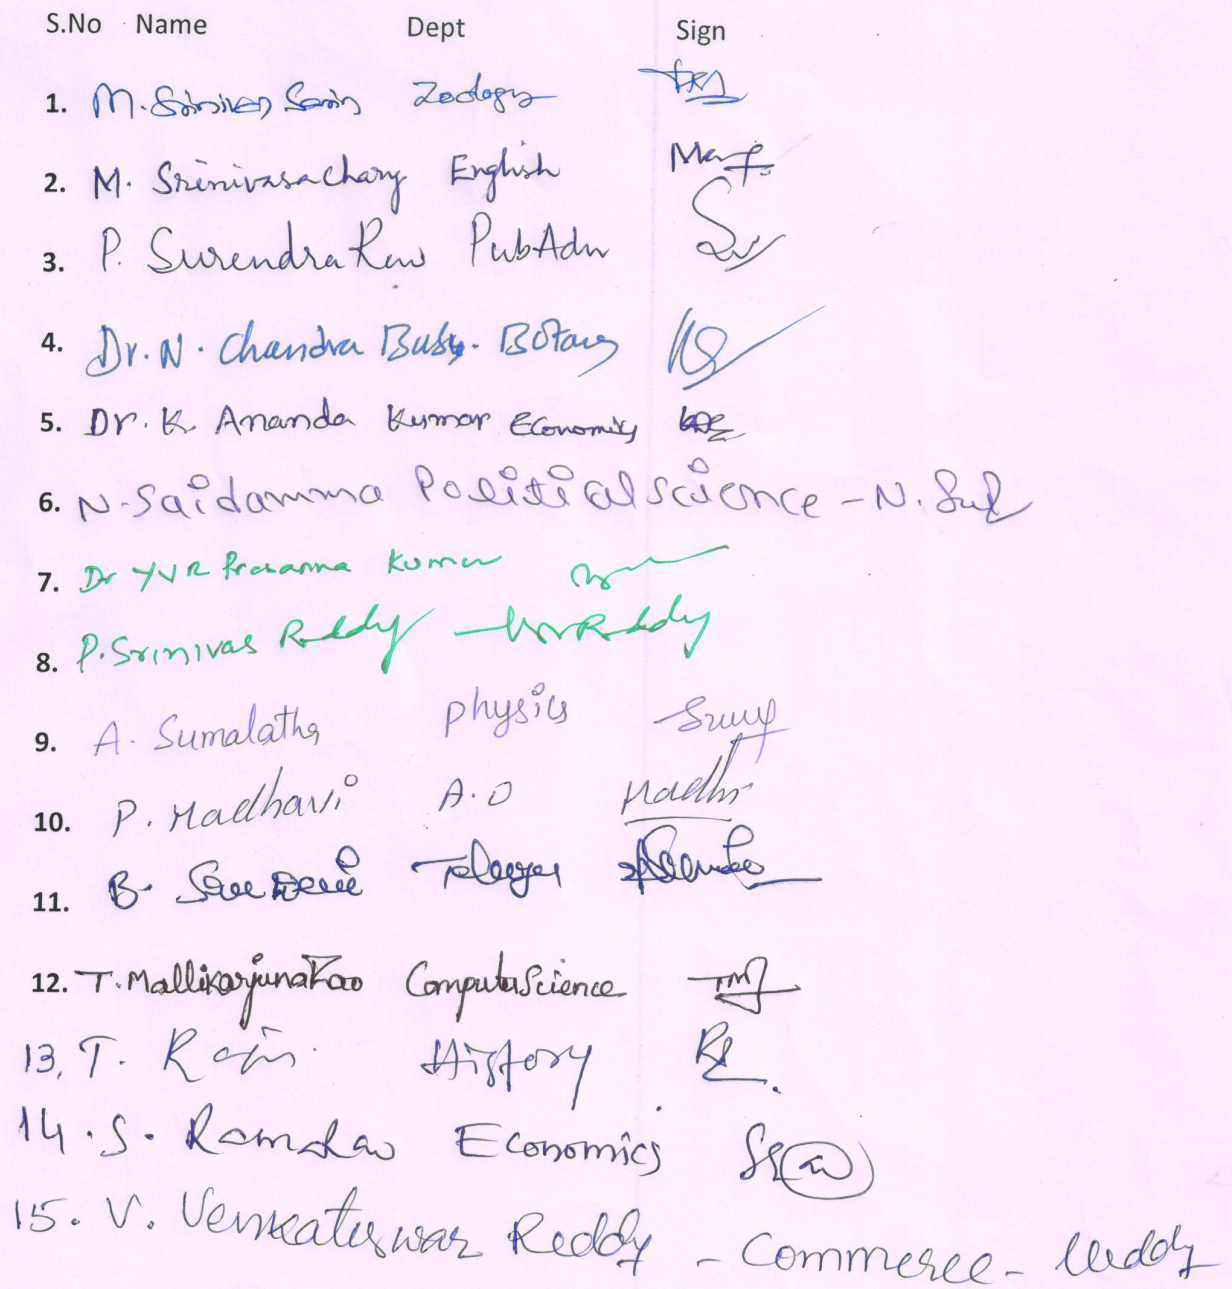 S.No Name Dept Sign
1. M. Srinivas Zoology
2. M. Srinivasachary English
3. P. Surendra Rao PubAdn
4. Dr. N. Chandra Babu. Botany
5. Dr. K. Ananda Kumar Economics
6. N. Saidamma Political science - N.
7. Dr YVR Prasanna Kumar
8. P. Srinivas Reddy Reddy
9. A. Sumalatha physics
10. P. Madhavi A.O Madhvi
11. B. Telugu
12. T. MallikarjunaRao Computer Science TMJ
13, T. History
14. S. Ram Rao Economics
15. V. Venkateswar Reddy - Commerce - Reddy